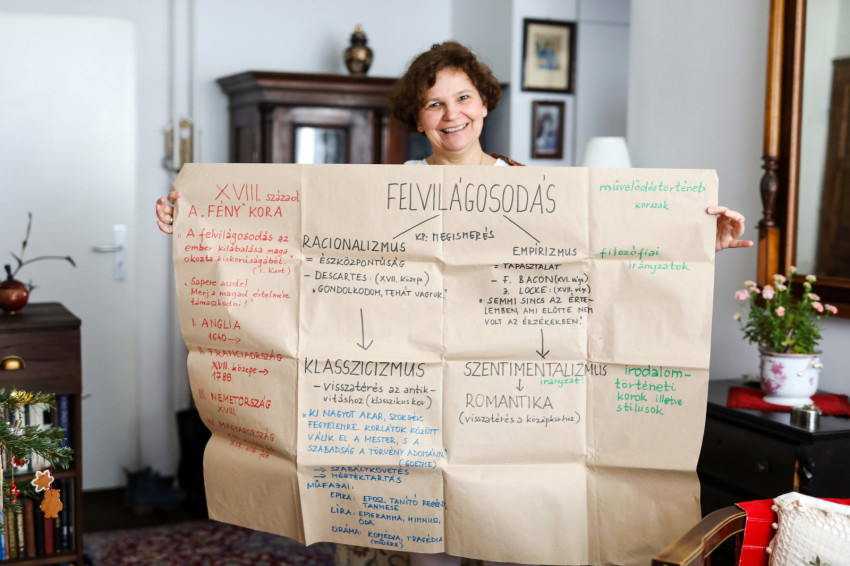 XVIII. század
A "FÉNY" KORA
"A felvilágosodás az
ember kilábalása maga
okozta kiskorúságából."
(I. Kant)
"Sapere aude!
Merj a magad értelmére
támaszkodni!"
I. ANGLIA
1640 →
II. FRANCIAORSZÁG
XVII. közepe →
1789
III. NÉMETORSZÁG
XVIII.
IV. MAGYARORSZÁG
FELVILÁGOSODÁS
KP: MEGISMERÉS
RACIONALIZMUS
= ÉSZKÖZPONTÚSÁG
– DESCARTES: (XVII. közepe)
"GONDOLKODOM, TEHÁT VAGYOK."
KLASSZICIZMUS
– visszatérés az antik-
vitáshoz (klasszikus kor)
"KI NAGYOT AKAR, SZOKJÉK
FEGYELEMRE. KORLÁTOK KÖZÖTT
VÁLIK EL A MESTER, S A
SZABADSÁG A TÖRVÉNY ADOMÁNYA."
(GOETHE)
→ SZABÁLYKÖVETÉS
→ MÉRTÉKTARTÁS
MŰFAJAI:
EPIKA: EPOSZ, TANÍTÓ REGÉNY,
TANMESE
LÍRA: EPIGRAMMA, HIMNUSZ,
ÓDA
DRÁMA: KOMÉDIA, TRAGÉDIA
EMPIRIZMUS
= TAPASZTALAT
– F. BACON (XVI. vége)
J. LOCKE: (XVII. vége)
"SEMMI SINCS AZ ÉRTE-
LEMBEN, AMI ELŐTTE NEM
VOLT AZ ÉRZÉKEKBEN."
SZENTIMENTALIZMUS
irányzat
ROMANTIKA
(visszatérés a középkorhoz)
művelődéstörténeti
korszak
filozófiai
irányzatok
irodalom-
történeti
korok illetve
stílusok